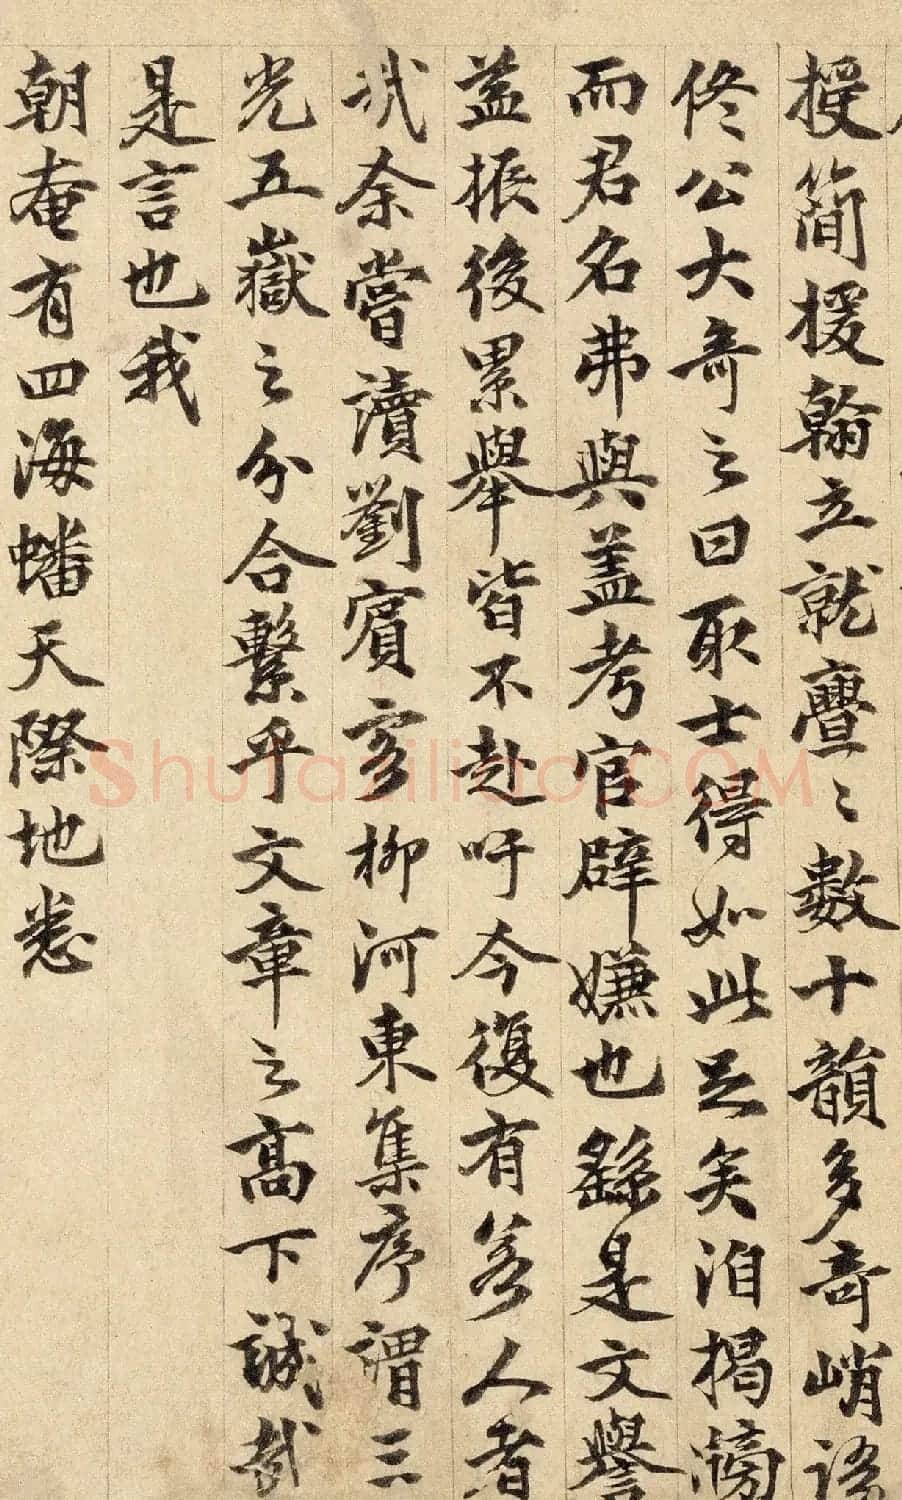 授簡援翰立就亹〻數十韻多奇峭語
佟公大奇之曰取士得如此足矣洎揭牓
而君名弗與蓋考官辟嫌也繇是文譽
益振後累舉皆不赴吁今復有若人者
哉余嘗讀劉賓客柳河東集序謂三
光五嶽之分合繫乎文章之高下誠哉
是言也我
朝奄有四海蟠天際地悉
Shufaziliao.COM